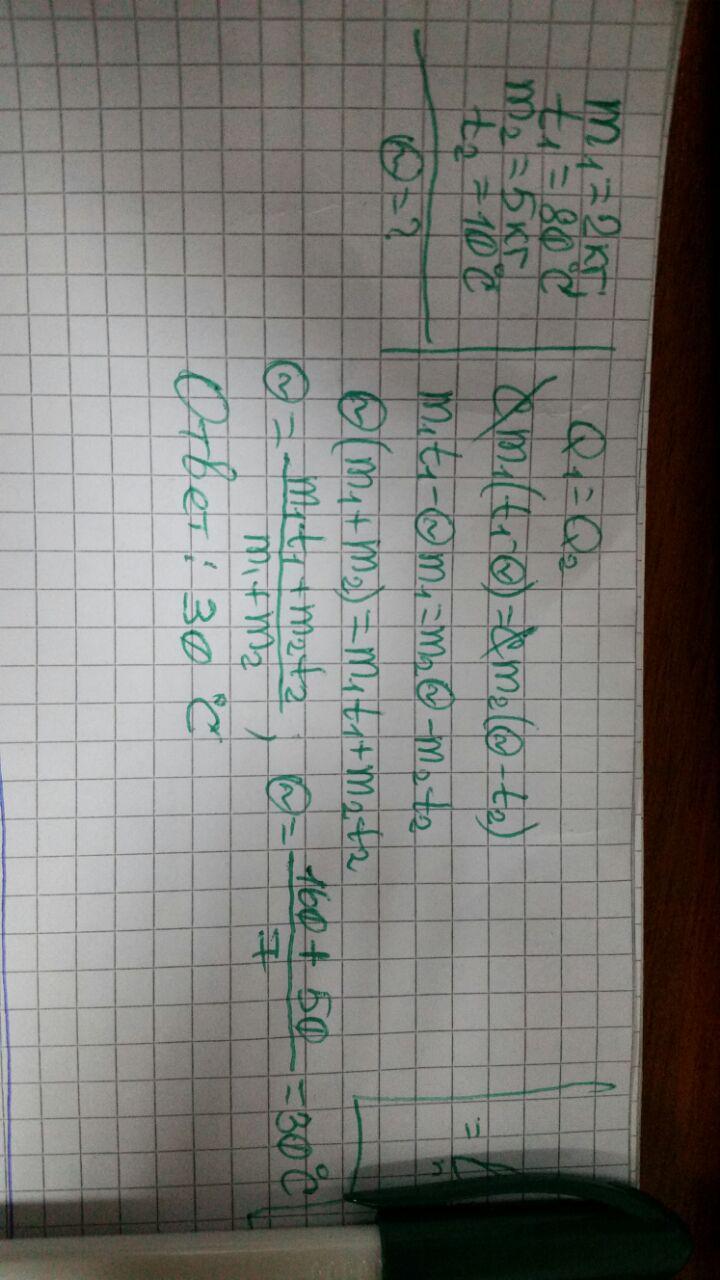 m₁ = 2 кг
t₁ = 80°C
m₂ = 5 кг
t₂ = 10°C
Θ = ?
Q₁ = Q₂
c m₁(t₁-Θ) = c m₂(Θ-t₂)
m₁t₁ - Θm₁ = m₂Θ - m₂t₂
Θ(m₁ + m₂) = m₁t₁ + m₂t₂
Θ = (m₁t₁ + m₂t₂)/(m₁ + m₂) ; Θ = (160 + 50)/7 = 30°C
Ответ: 30°C
=